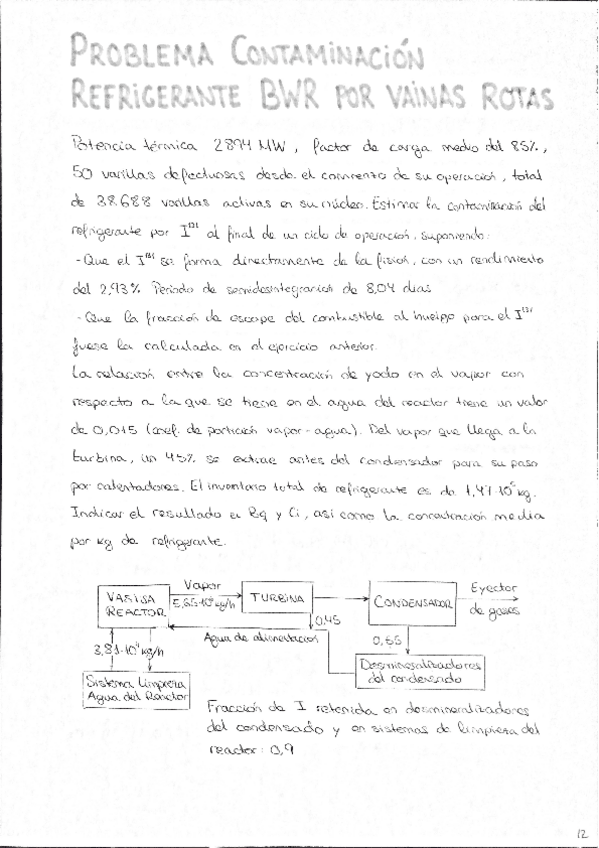 PROBLEMA CONTAMINACIÓN
REFRIGERANTE BWR POR VAINAS ROTAS
Potencia térmica 2894 MW, factor de carga medio del 85%,
50 varillas defectuosas desde el comienzo de su operación, total
de 38.688 varillas activas en su núcleo. Estimar la contaminación del
refrigerante por I¹³¹ al final de un ciclo de operación, suponiendo:
- Que el I¹³¹ se forma directamente de la fisión, con un rendimiento
del 2,93%. Periodo de semidesintegración de 8,04 días
- Que la fracción de escape del combustible al huelgo para el I¹³¹
fuese la calculada en el ejercicio anterior.
La relación entre la concentración de yodo en el vapor con
respecto a la que se tiene en el agua del reactor tiene un valor
de 0,015 (coef. de partición vapor-agua). Del vapor que llega a la
turbina, un 45% se extrae antes del condensador para su paso
por calentadores. El inventario total de refrigerante es de kg.
Indicar el resultado en Bq y Ci, así como la concentración media
por kg de refrigerante.
VASIJA
REACTOR
Vapor
kg/h
TURBINA
CONDENSADOR
Eyector
de gases
0,45
Agua de alimentación
0,55
Desmineralizadores
del condensado
3,81·10⁴ kg/h
Sistema Limpieza
Agua del Reactor
Fracción de I retenida en desmineralizadores
del condensado y en sistemas de limpieza del
reactor: 0,9
12